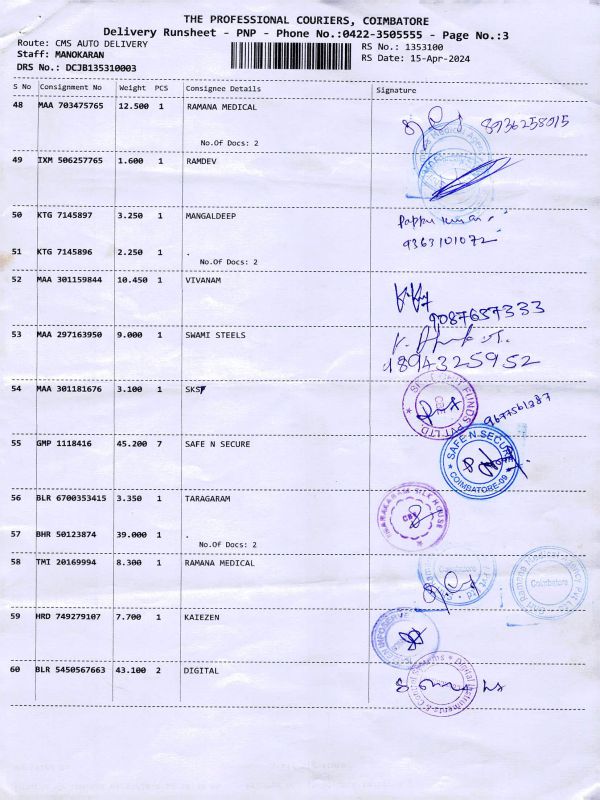 THE PROFESSIONAL COURIERS, COIMBATORE
Delivery Runsheet - PNP - Phone No.:0422-3505555 - Page No.:3
Route: CMS AUTO DELIVERY
RS No.: 1353100
Staff: MANOKARAN
RS Date: 15-Apr-2024
DRS No.: DCJB135310003
S No Consignment No Weight PCS Consignee Details Signature
48 MAA 703475765 12.500 1 RAMANA MEDICAL
8936258015
No.Of Docs: 2
49 IXM 506257765 1.600 1 RAMDEV
50 KTG 7145897 3.250 1 MANGALDEEP
Pappu kumar
9363101072
51 KTG 7145896 2.250 1 .
No.Of Docs: 2
52 MAA 301159844 10.450 1 VIVANAM
9087637333
53 MAA 297163950 9.000 1 SWAMI STEELS
1894325952
54 MAA 301181676 3.100 1 SKSF
FUNDS PVT LTD
CBE
9677561387
55 GMP 1118416 45.200 7 SAFE N SECURE
SAFE N SECURE
COIMBATORE-09
56 BLR 6700353415 3.350 1 TARAGARAM
THARAKARAM SILK HOUSE
CBE
57 BHR 50123874 39.000 1 .
No.Of Docs: 2
58 TMI 20169994 8.300 1 RAMANA MEDICAL
Coimbatore
Coimbatore
59 HRD 749279107 7.700 1 KAIEZEN
60 BLR 5450567663 43.100 2 DIGITAL
Digital Instruments & Control Systems